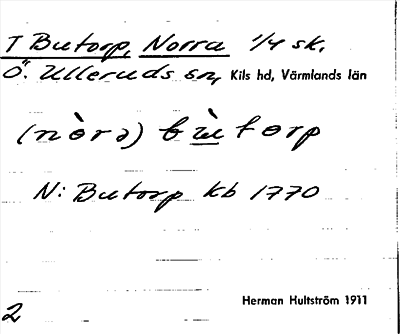 T Butorp, Norra 1/4 sk.
Ö. Ulleruds sn, Kils hd, Värmlands län
(nòrə) bùtorp
N: Butorp Kb 1770
Herman Hultström 1911
2